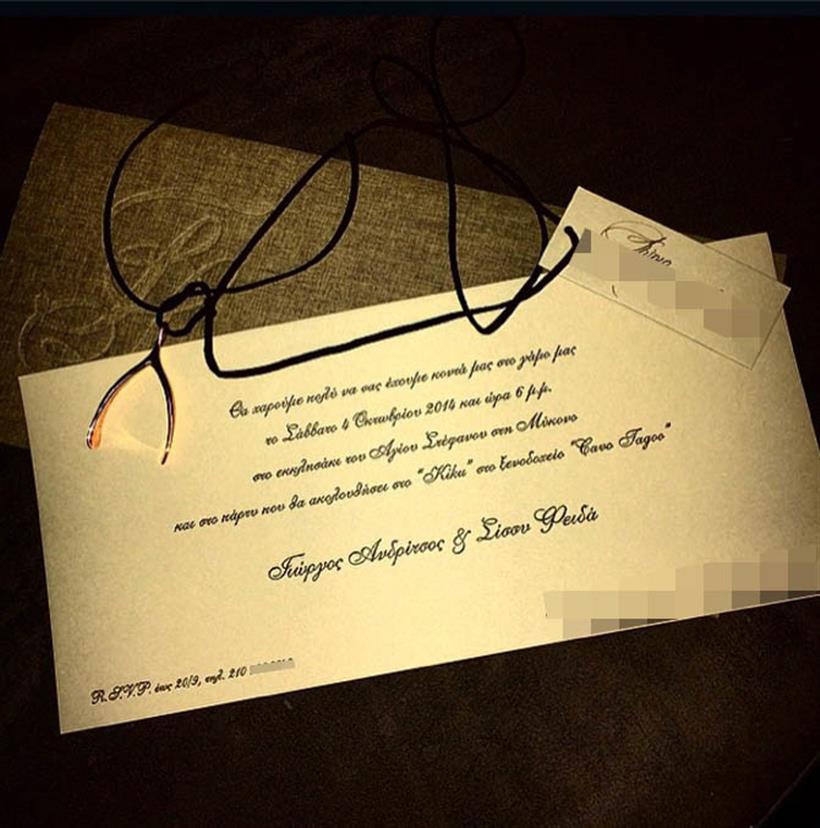 Θα χαρούμε πολύ να σας έχουμε κοντά μας στο γάμο μας
το Σάββατο 4 Οκτωβρίου 2014 και ώρα 6 μ.μ.
στο εκκλησάκι του Αγίου Στέφανου στη Μύκονο
και στο πάρτυ που θα ακολουθήσει στο "Kiku" στο ξενοδοχείο "Cavo Tagoo"
Γιώργος Ανδρίτσος & Σίσσυ Φειδά
R.S.V.P. έως 20/9, τηλ. 210